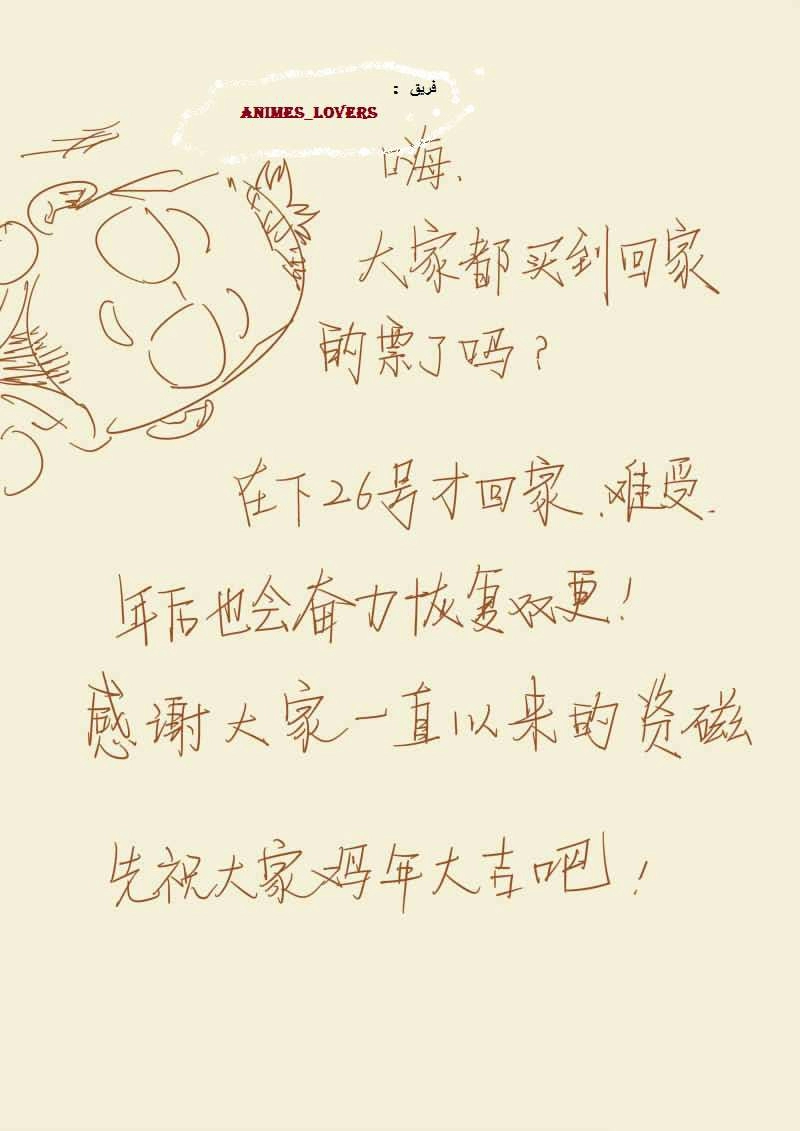 فريق :
ANIMES_LOVERS
嗨.
大家都买到回家
的票了吗?
在下26号才回家.难受.
年后也会奋力恢复双更!
感谢大家一直以来的资磁
先祝大家鸡年大吉吧!